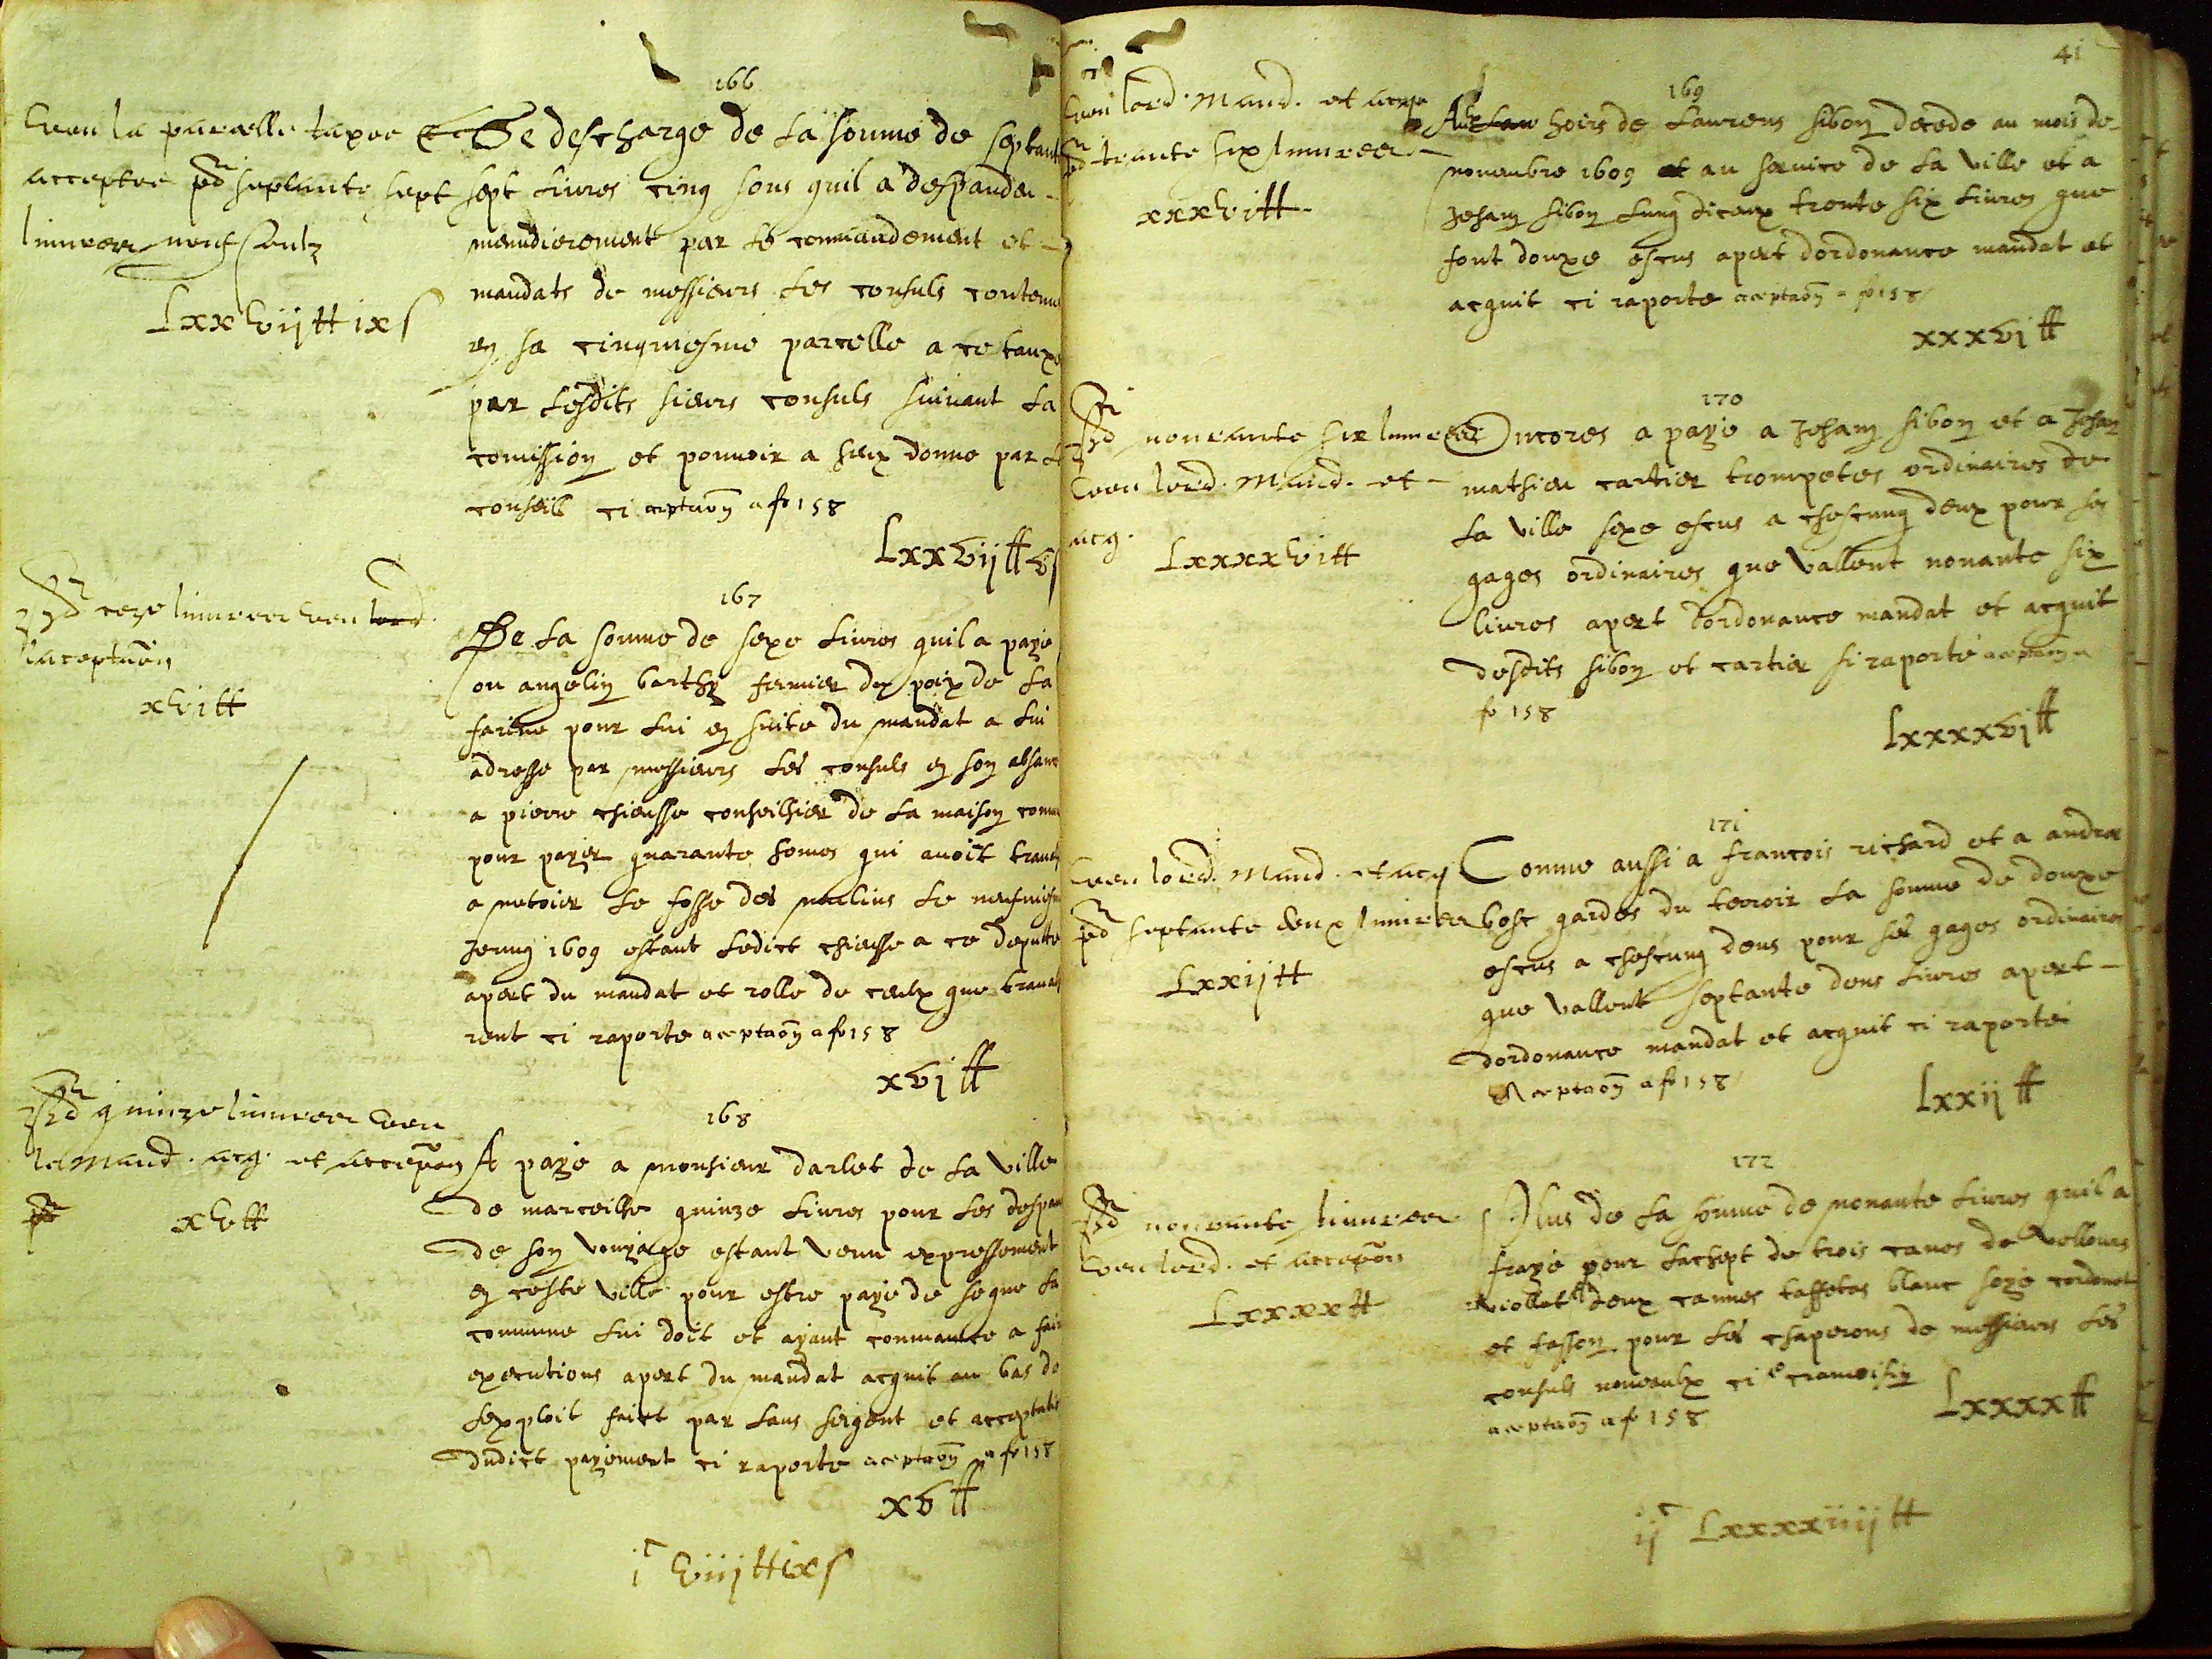 166
Veu la parcelle taxee et
acceptee pd septante sept
livres neuf soulz
Lxxvij tt ix s
Se descharge de la soume de septante
sept livres cinq sous quil a despandu
menudierement par le commandement et
mandats de messieurs les consuls contenus
en sa cinqniesme parcelle a ce tauxe
par lesdits sieurs consuls suivant la
comission et pouvoir a heux donne par le
conseil ci aceptaon a fo 158
Lxxvij tt v s
167
pd seze livres veu lord.
lacceptaon
xvi tt
De la somme de seze livres quil a paye
ou angelin barthy fermier du poix de la
farine pour lui en suite du mandat a lui
adresse par messieurs les consuls en son absance
a pierre chieusse conseilhier de la maison comune
pour payer quarante homes qui avoit
a netoier le fosse des moulins le
1609 estant ledict chieusse a ce deputte
apert du mandat et rolle de ceulx que travalh
rent ci raporte aceptaon a fo 158
xvj tt
168
pd quinze livres veu
le mand. acq. et accepon
xv tt
A paye a monsieur darlet de la ville
de marceilhe quinze livres pour les despans
de son vouyage estant venu expressement
en ceste ville pour estre paye de se que la
commune lui doit et ayant commance a faire
executions apert du mandat acquit au bas de
lexploit faict par lans sergent et acceptation
dudict payement ci raporte aceptaon a fo 158
xv tt
i c viij tt ix s
41
169
Veu lord. mand. et acq
pd trante six livres
xxxvi tt
Aux hoirs de Laurens sibon decede au mois de
novembre 1609 au service de la ville et a
Jehan sibon lung diceux trente six livres que
sont douze escus apert dordonance mandat et
acquit ci raporte aceptaon a fo 158
xxxvj tt
170
pd nonante six livres
veu lord. mand. et
acq.
Lxxxxvi tt
Encores a paye a Jehan sibon et a Jehan
mathieu cartier trompetes ordinaires de
la ville seze escus a chescung deux pour ses
gages ordinaires que vallent nonante six
livres apert dordonance mandat et acquit
desdits sibon et cartier si raporte aceptaon a
fo 158
Lxxxxvj tt
171
Veu lord. mand. et acq
pd septante deux livres
Lxxij tt
Comme aussi a francois richard et a andre
bosc gardes du terroir la somme de douze
escus a chescung deus pour ses gages ordinaires
que vallent septante deus livres apert
dordonance mandat et acquit ci raporte
aceptaon a fo 158
Lxxij tt
172
pd nonante livres
veu lord. et accepon
Lxxxx tt
Plus de la somme de nonante livres quil a
fraye pour lachept de trois canes de vellours
viollet deux cannes taffetas blanc soye cordonet
et fasson pour les chaperons de messieurs les
consuls nouveaulx ci cramoisin
aceptaon a fo 158
Lxxxx tt
ij c Lxxxxiiij tt